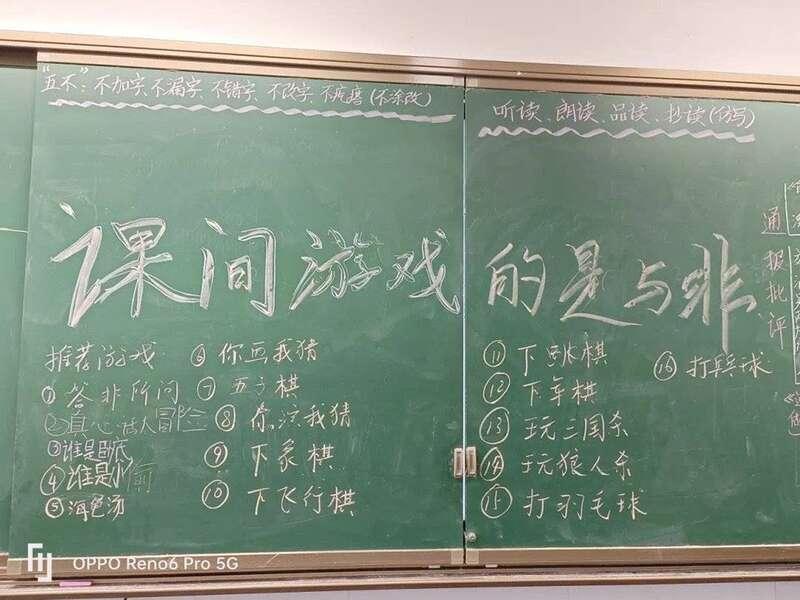 "五不"：不加字、不漏字、不错字、不改字、不疙瘩（不涂改）
听读、朗读、品读、抄读（仿写）
课间游戏的是与非
通报批评
推荐游戏
①答非所问
②真心话大冒险
③谁是卧底
④谁是小偷
⑤海龟汤
⑥你画我猜
⑦五子棋
⑧你演我猜
⑨下象棋
⑩下飞行棋
⑪下跳棋
⑫下军棋
⑬玩三国杀
⑭玩狼人杀
⑮打羽毛球
⑯打乒乓球
OPPO Reno6 Pro 5G